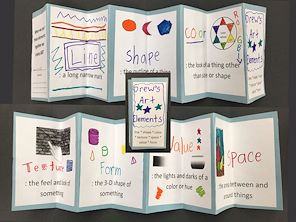 Line
: a long narrow mark
Shape
: the outline of a thing
Color
: the look of a thing other
than size or shape
Drew's
Art
Elements
Texture
: the feel and look of
something
Form
: the 3-D shape of
something
Value
: the lights and darks of a
color or hue
Space
: the area between and
around things